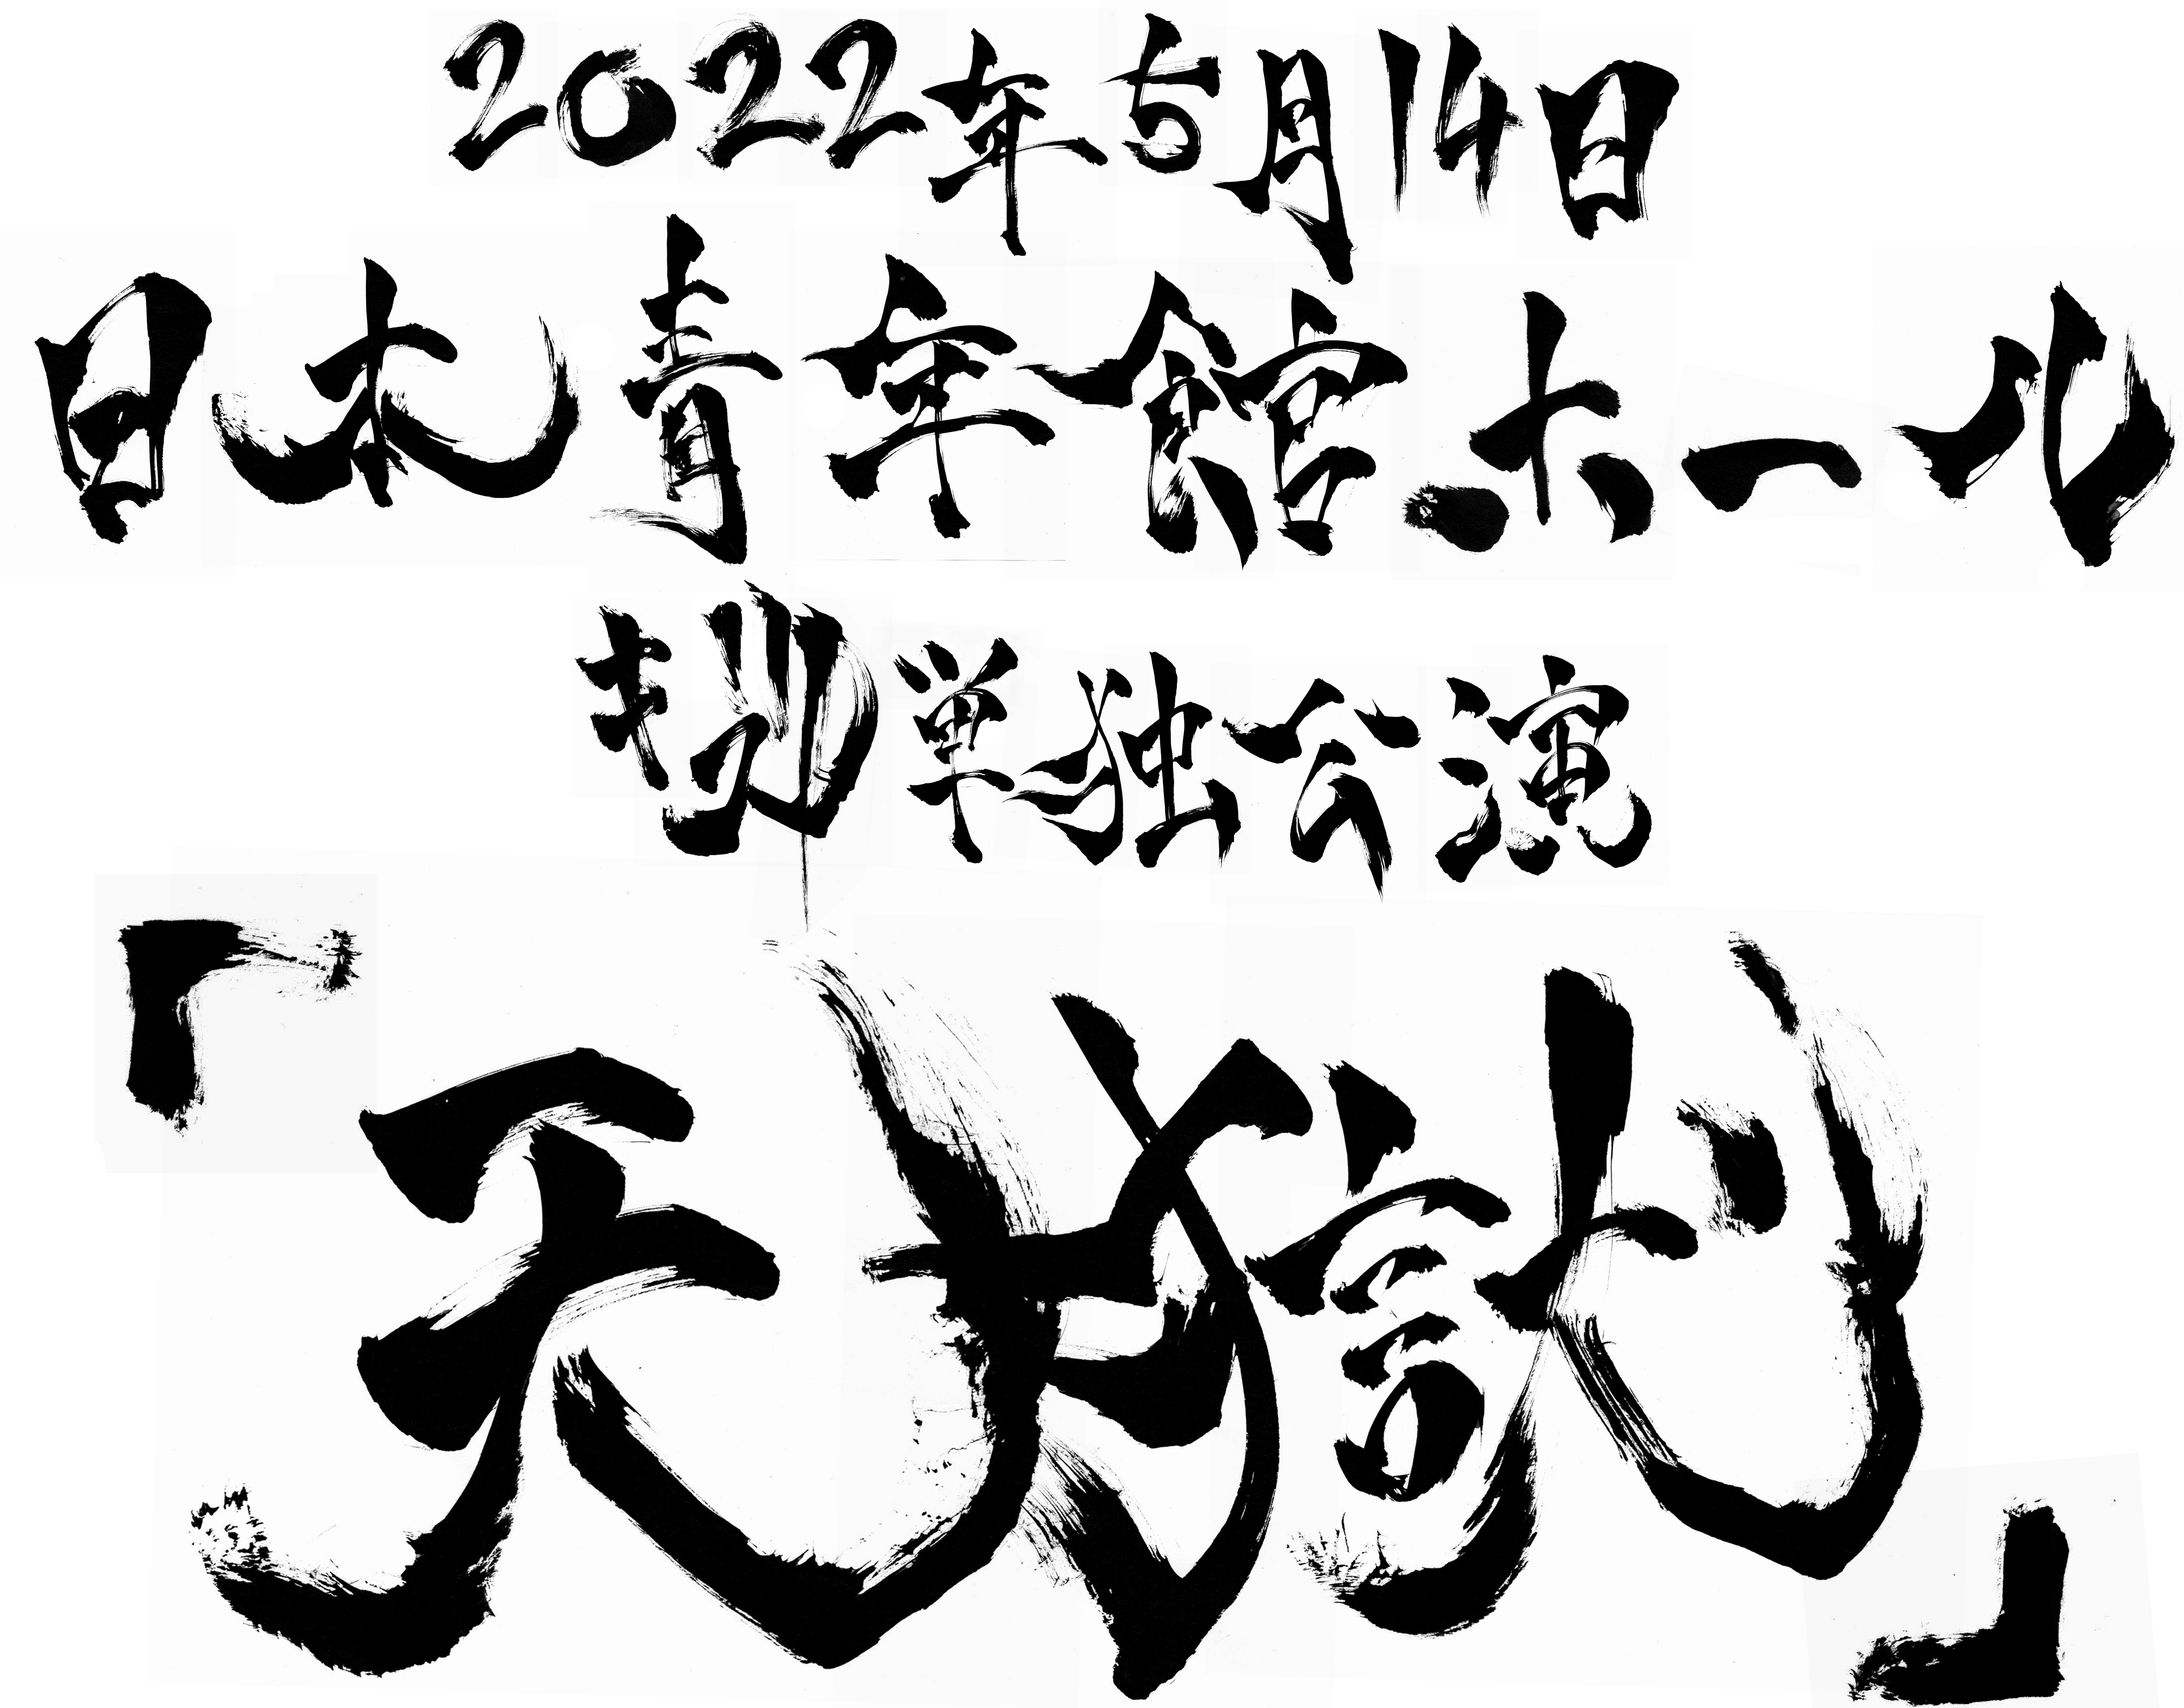 2022年5月14日
日本青年館ホール
キズ単独公演
「天獄」